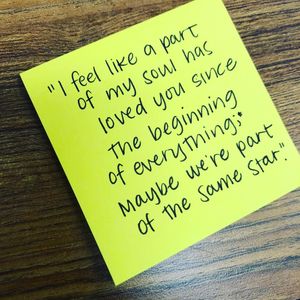 "I feel like a part
of my soul has
loved you since
the beginning
of everything;
Maybe we're part
of the same star."